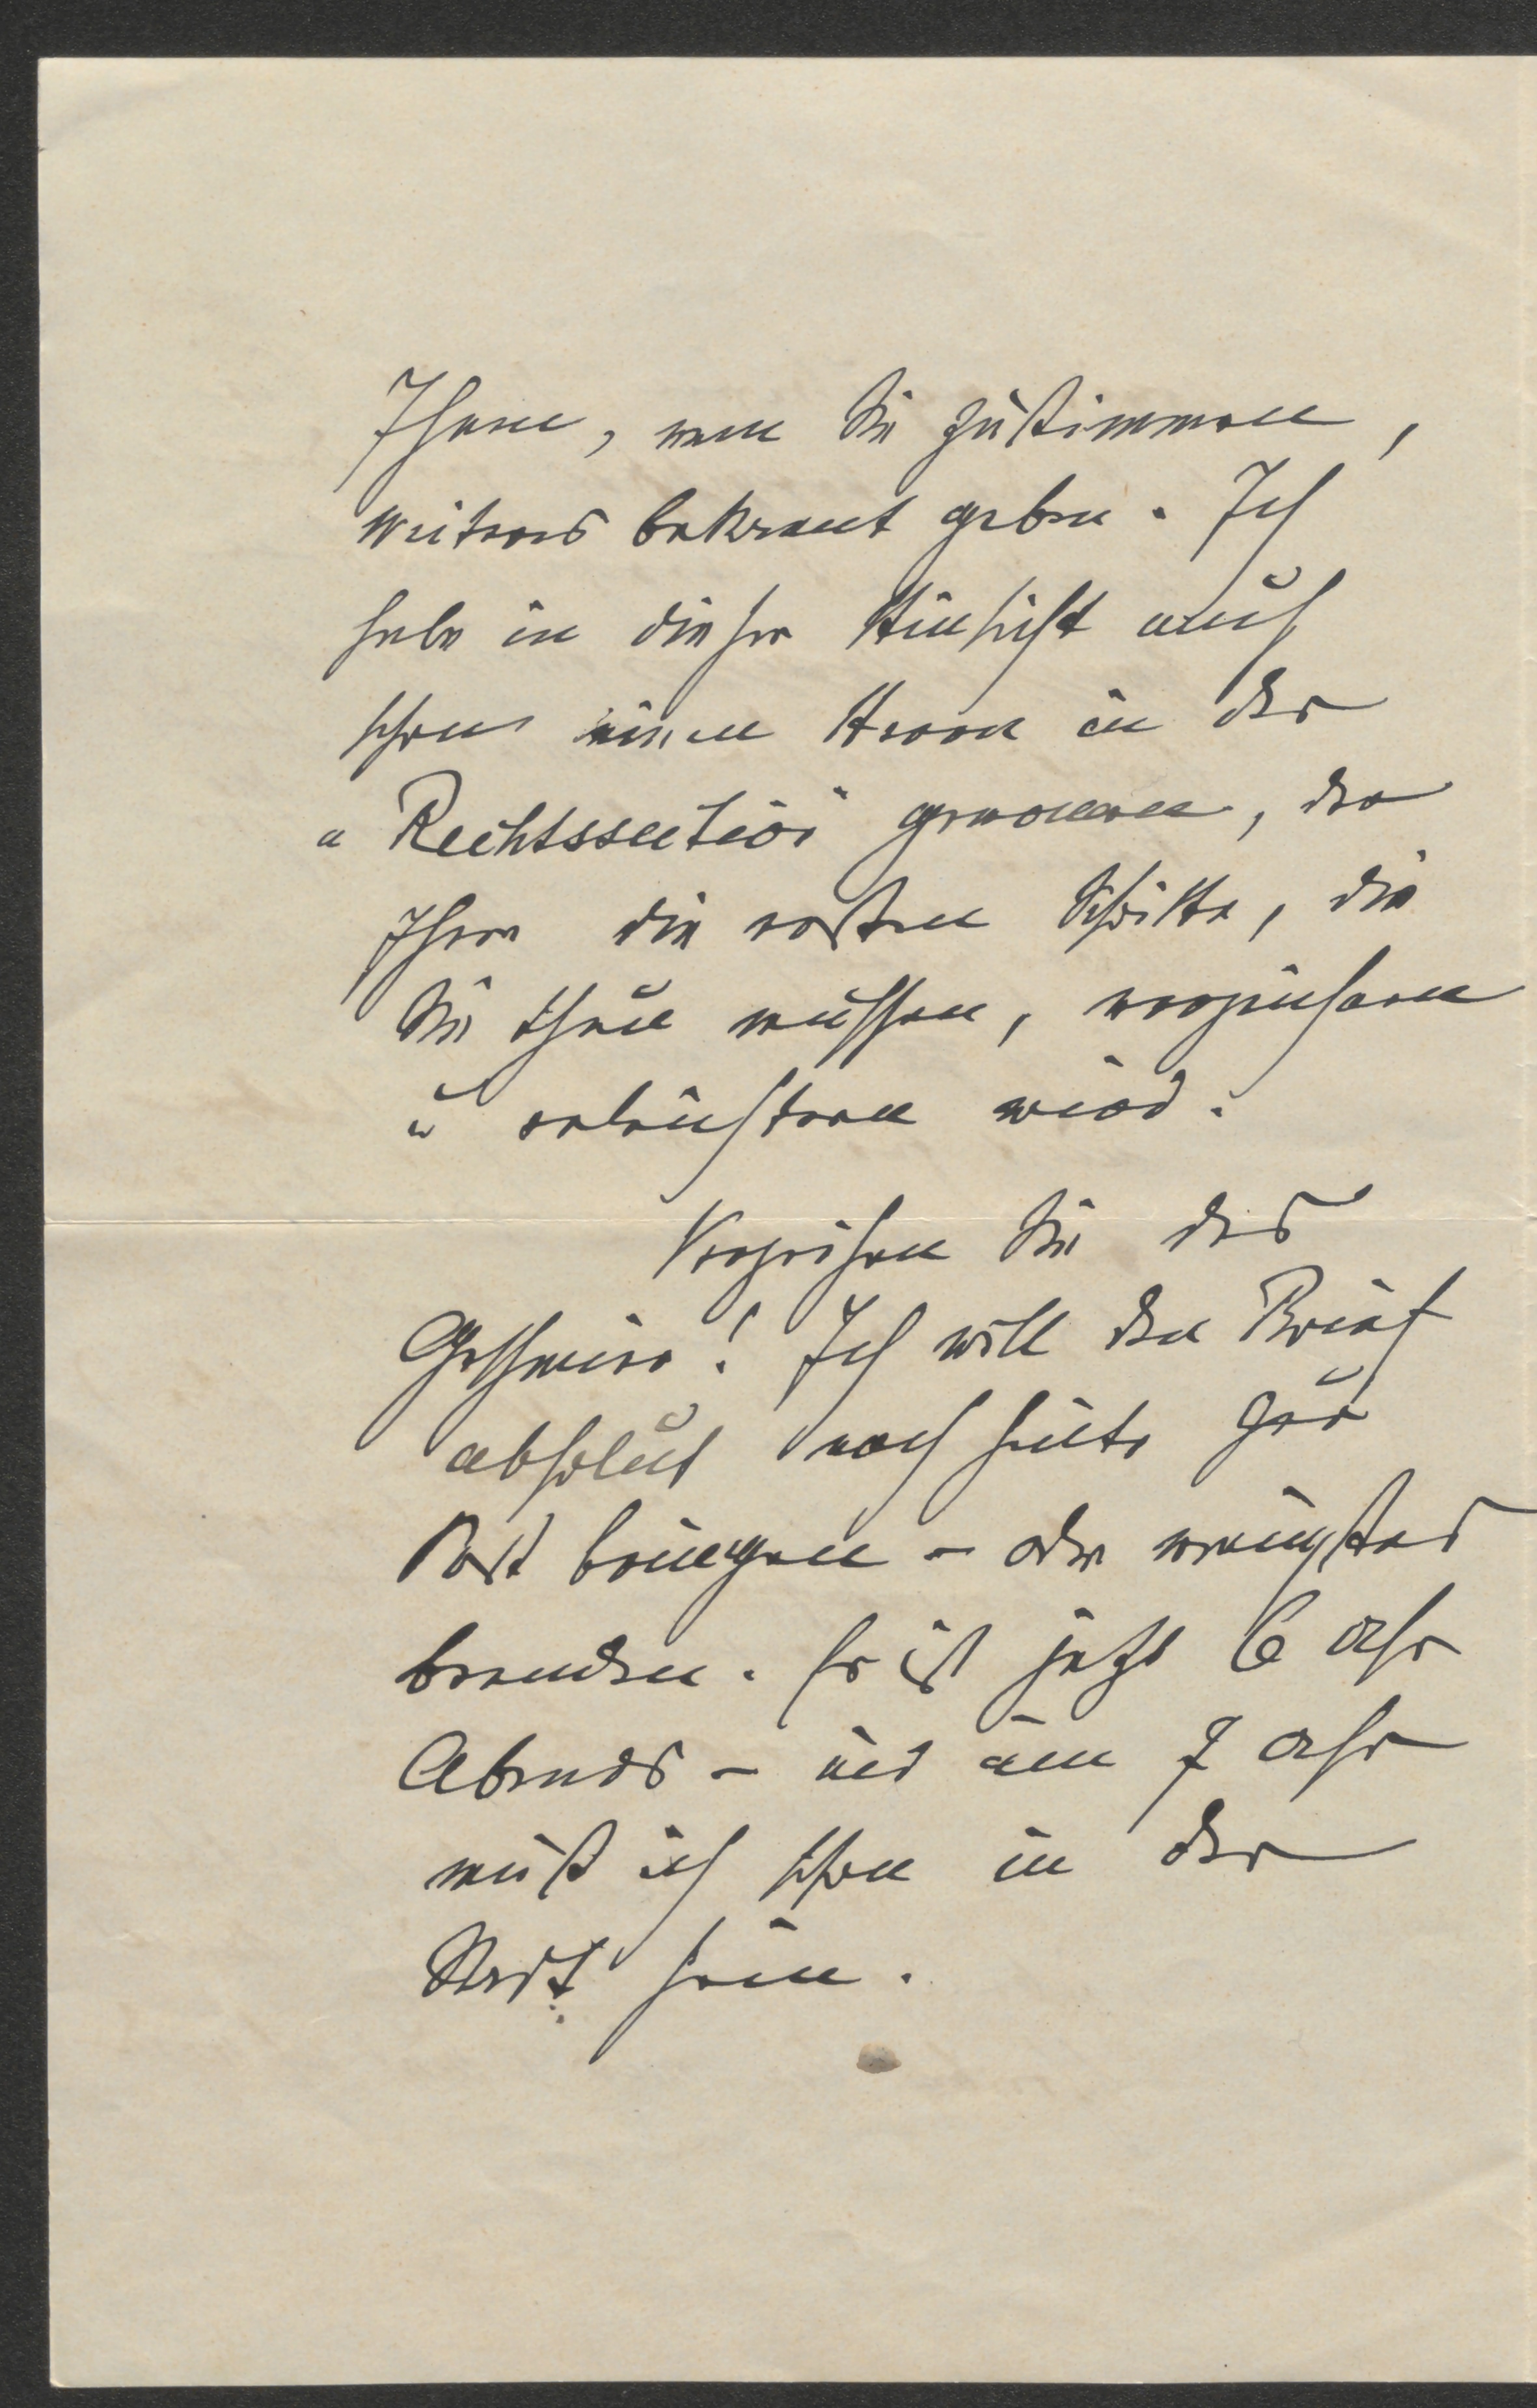 Ihnen, wenn Sie zustimmen,
weiteres bekannt geben. Ich
habe in dieser Hinsicht auch
schon einen Herrn in der
"Rechtssection" gewonnen, der
Ihnen die ersten Schritte, die
Sie thun müssen, vorzeichnen
u erleichtern wird.
Verzeihen Sie das
Geschmier! Ich will den Brief
absolut noch heute zur
Post bringen - oder wenigstens
beenden. Es ist jetzt 6 Uhr
Abends - und um 7 Uhr
muß ich schon in der
Stadt sein.